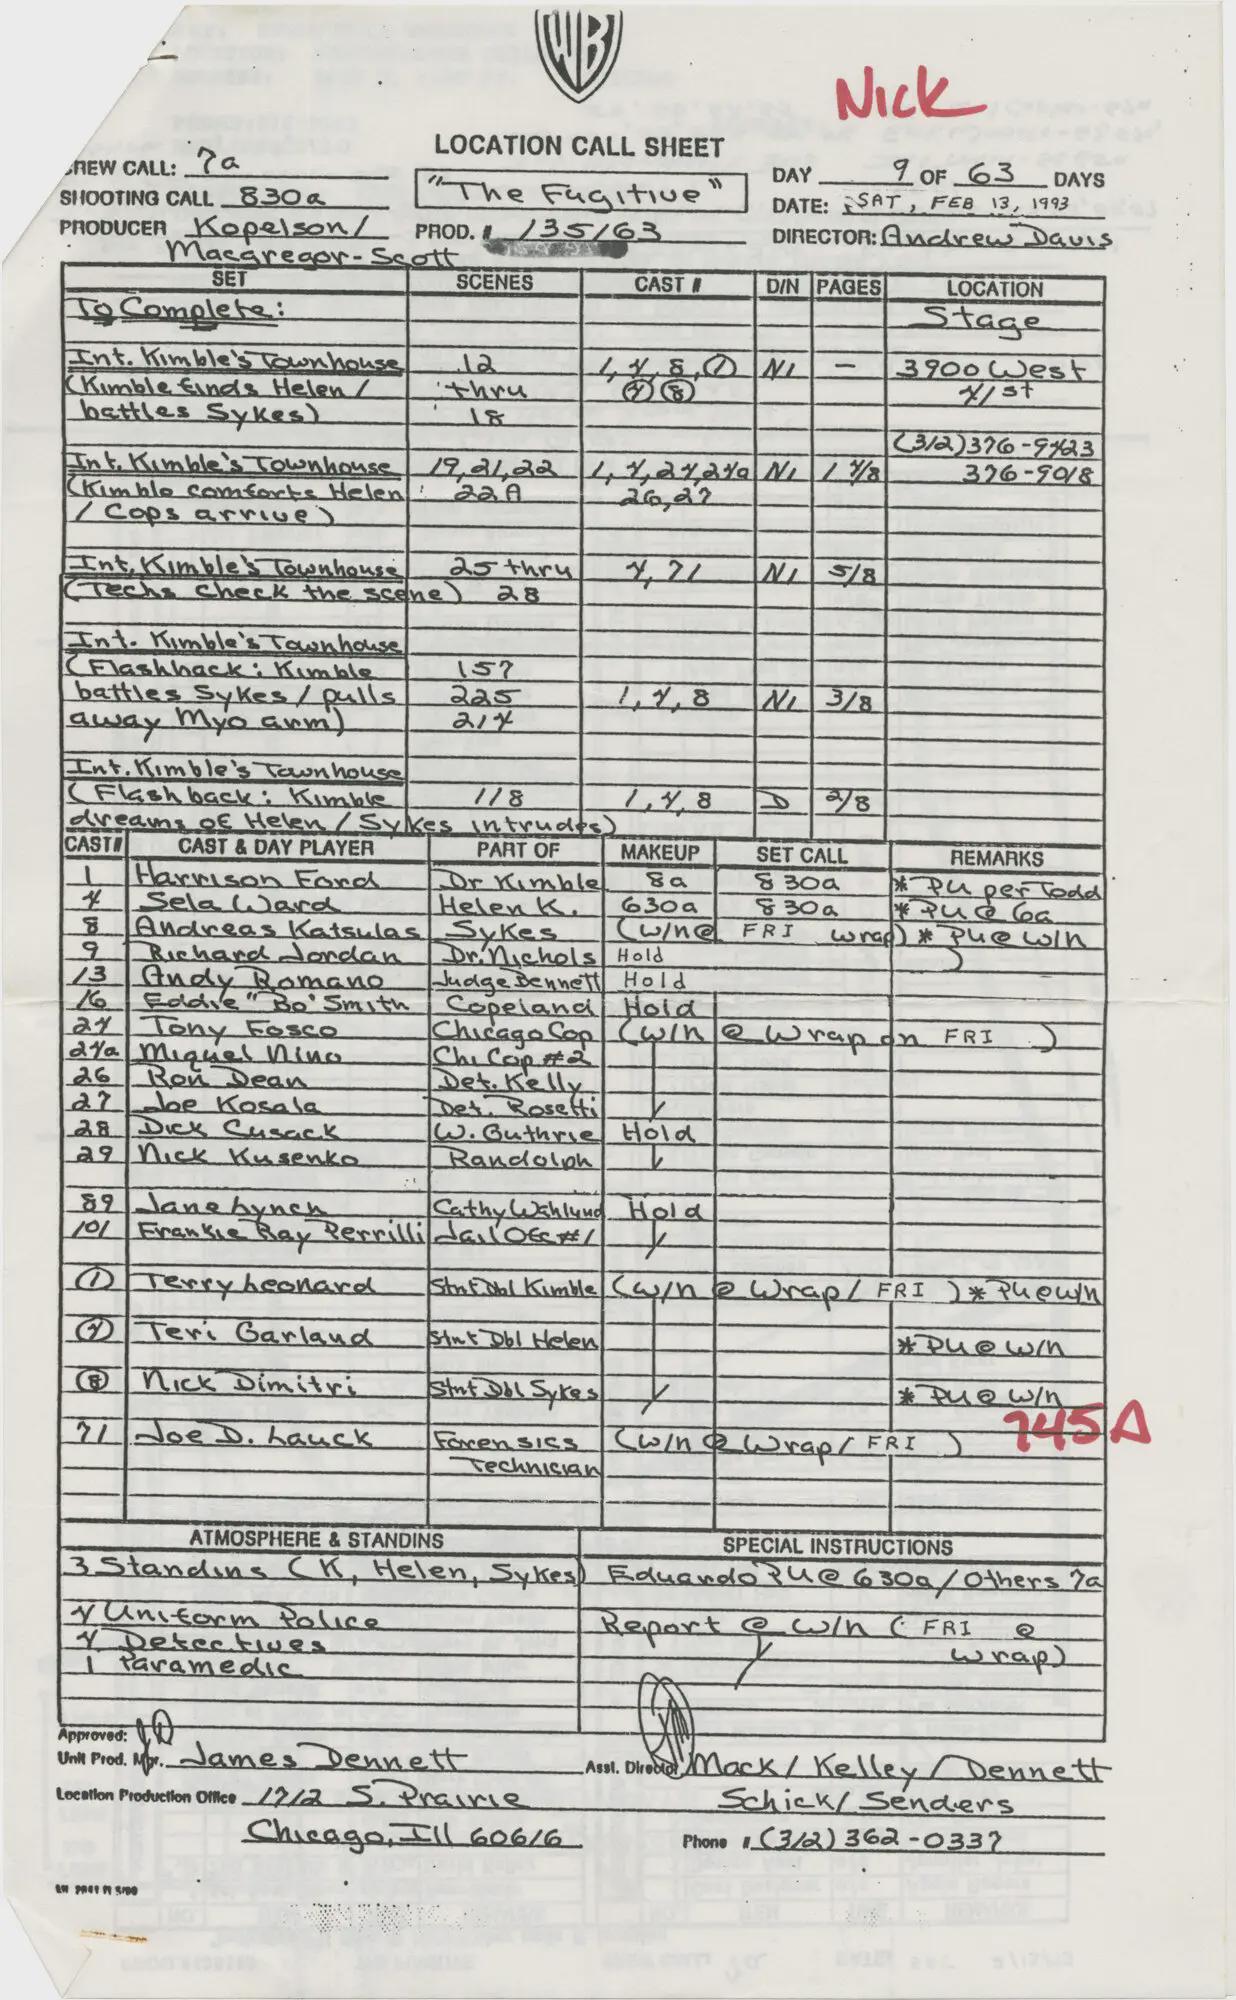 WB
Nick
LOCATION CALL SHEET
CREW CALL: 7a
"The Fugitive"
DAY 9 OF 63 DAYS
SHOOTING CALL 830a
DATE: SAT, FEB 13, 1993
PRODUCER Kopelson/
Macgregor-Scott
PROD. # 135/63
DIRECTOR: Andrew Davis
SET SCENES CAST # D/N PAGES LOCATION
To Complete: Stage
Int. Kimble's Townhouse 12 1, 4, 8, (1) N1 — 3900 West
(Kimble finds Helen / thru (4) (8) 41st
battles Sykes) 18
(312) 376-9423
Int. Kimble's Townhouse 19, 21, 22 1, 4, 24, 24a N1 1 4/8 376-9018
(Kimble comforts Helen 22A 26, 27
/ Cops arrive)
Int. Kimble's Townhouse 25 thru 4, 71 N1 5/8
(Techs check the scene) 28
Int. Kimble's Townhouse
(Flashback: Kimble 157
battles Sykes / pulls 225 1, 4, 8 N1 3/8
away Myo arm) 214
Int. Kimble's Townhouse
(Flashback: Kimble 118 1, 4, 8 D 2/8
dreams of Helen / Sykes intrudes)
CAST# CAST & DAY PLAYER PART OF MAKEUP SET CALL REMARKS
1 Harrison Ford Dr Kimble 8a 830a * PU per Todd
4 Sela Ward Helen K. 630a 830a * PU @ 6a
8 Andreas Katsulas Sykes (w/n @ FRI wrap) * PU @ w/n
9 Richard Jordan Dr. Nichols Hold )
13 Andy Romano Judge Bennett Hold
16 Eddie "Bo" Smith Copeland Hold
24 Tony Fosco Chicago Cop (w/n @ Wrap on FRI )
24a Miguel Nino Chi Cop #2
26 Ron Dean Det. Kelly
27 Joe Kosala Det. Rosetti
28 Dick Cusack W. Guthrie Hold
29 Nick Kusenko Randolph
89 Jane Lynch Cathy Wahlund Hold
101 Frankie Ray Perrilli Jail Ofc #1
(1) Terry Leonard Stnt Dbl Kimble (w/n @ Wrap/ FRI ) * PU @ w/n
(4) Teri Garland Stnt Dbl Helen * PU @ w/n
(8) Nick Dimitri Stnt Dbl Sykes * PU @ w/n
745A
71 Joe D. Lauck Forensics (w/n @ Wrap/ FRI )
Technician
ATMOSPHERE & STANDINS SPECIAL INSTRUCTIONS
3 Standins (K, Helen, Sykes) Eduardo PU @ 630a / Others 7a
4 Uniform Police Report @ w/n ( FRI @
4 Detectives wrap)
1 Paramedic
Approved:
Unit Prod. Mgr. James Dennett
Asst. Director Mack / Kelley / Dennett
Location Production Office 1712 S. Prairie
Schick / Senders
Chicago, Ill 60616
Phone # (312) 362-0337